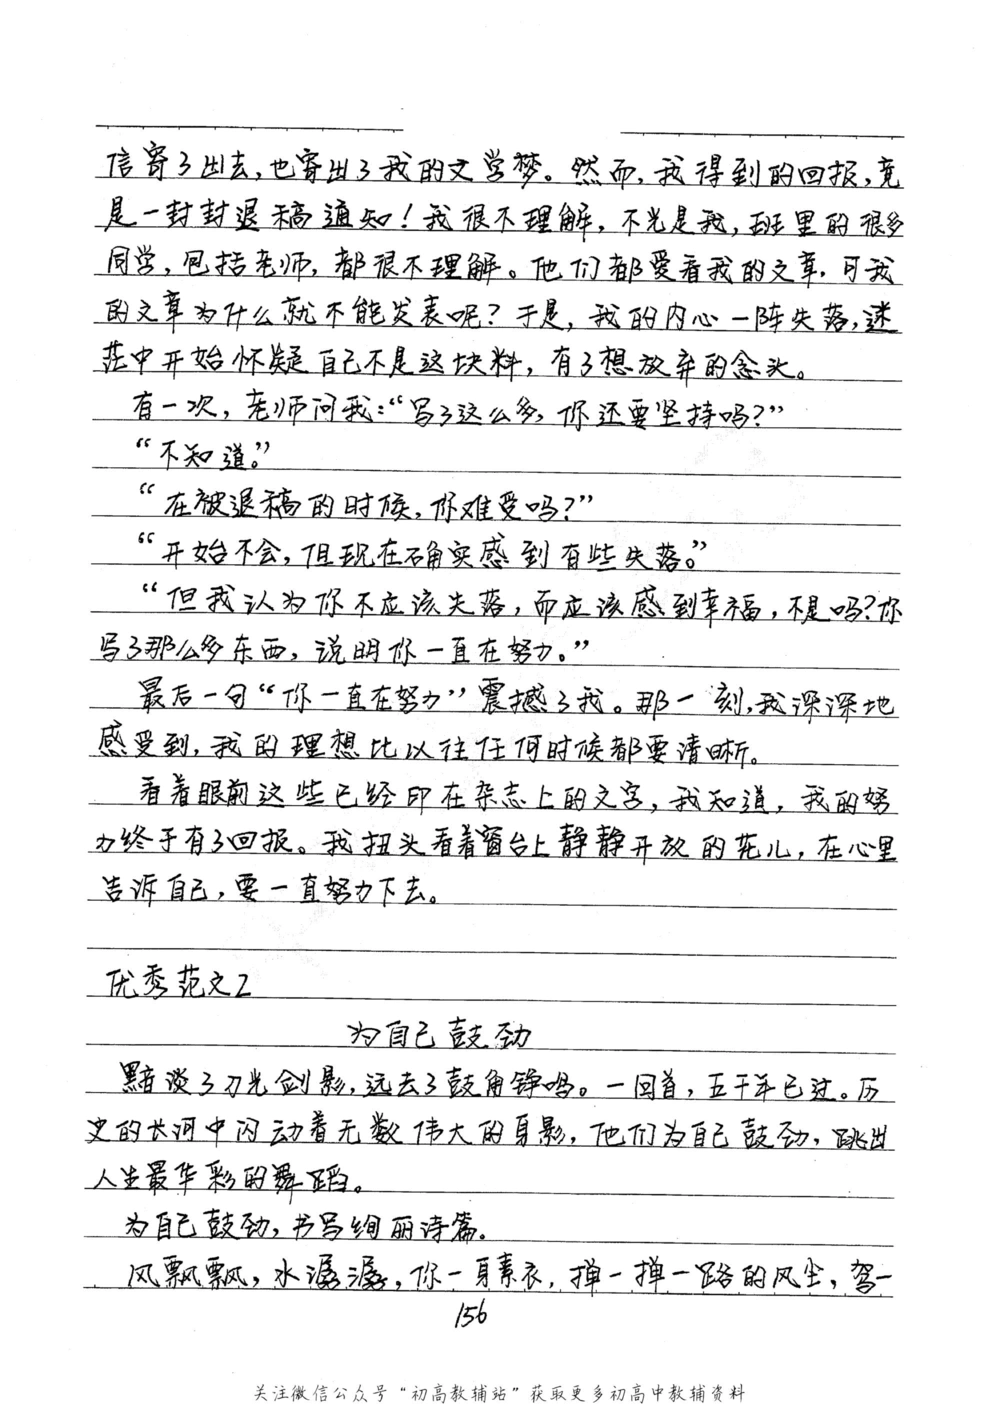 信寄了出去,也寄出了我的文学梦。然而,我得到的回报,竟
是一封封退稿通知!我很不理解,不光是我,班里的很多
同学,包括老师,都很不理解。他们都爱看我的文章,可我
的文章为什么就不能发表呢?于是,我的内心一阵失落,迷
茫中开始怀疑自己不是这块料,有了想放弃的念头。
有一次,老师问我:“写了这么多,你还要坚持吗?”
“不知道。”
“在被退稿的时候,你难受吗?”
“开始不会,但现在确实感到有些失落。”
“但我认为你不应该失落,而应该感到幸福,不是吗?你
写了那么多东西,说明你一直在努力。”
最后一句“你一直在努力”震撼了我。那一刻,我深深地
感受到,我的理想比以往任何时候都要清晰。
看着眼前这些已经印在杂志上的文字,我知道,我的努
力终于有了回报。我扭头看着窗台上静静开放的花儿,在心里
告诉自己,要一直努力下去。
优秀范文2
为自己鼓劲
黯淡了刀光剑影,远去了鼓角铮鸣。一回首,五千年已过。历
史的长河中闪动着无数伟大的身影,他们为自己鼓劲,跳出
人生最华彩的舞蹈。
为自己鼓劲,书写绚丽诗篇。
风飘飘,水潺潺,你一身素衣,掸一掸一路的风尘,驾一
156
关注微信公众号“初高教辅站”获取更多初高中教辅资料